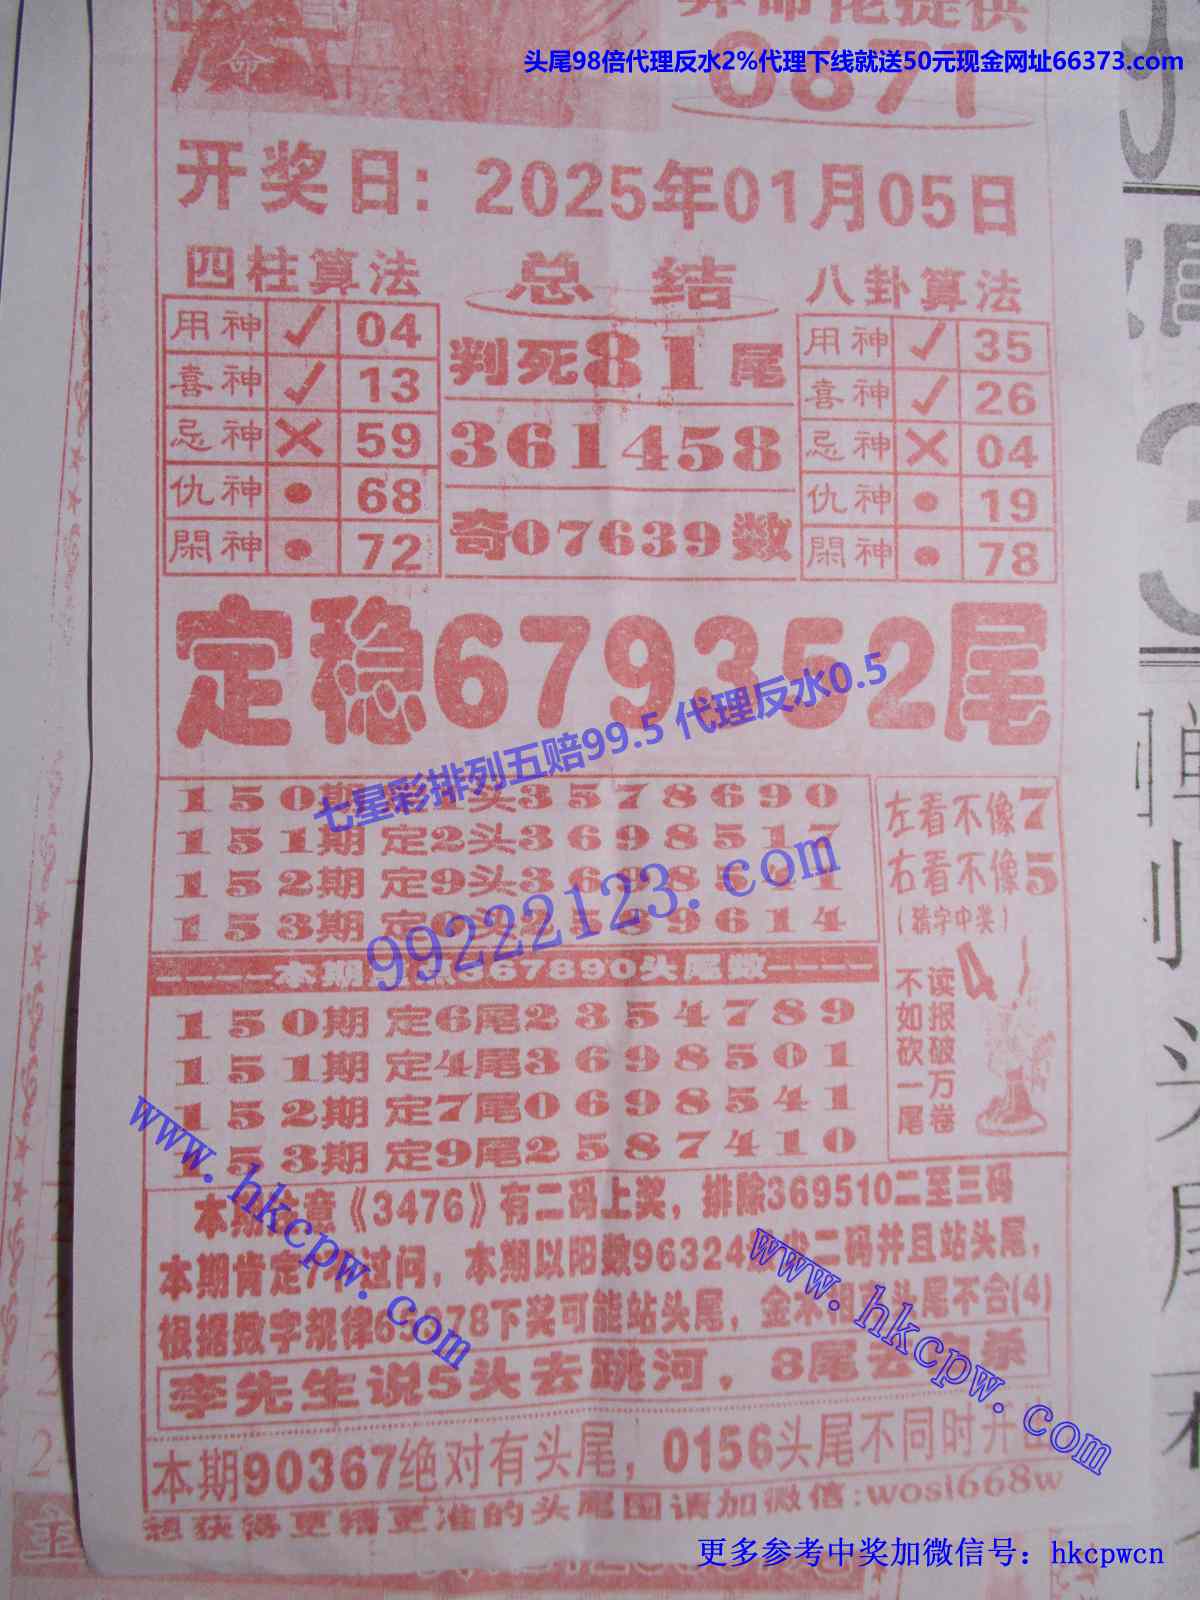 算命佬提供
头尾98倍代理反水2%代理下线就送50元现金网址66373.com
命
0671
开奖日：2025年01月05日
四柱算法
用神 ✓ 04
喜神 ✓ 13
忌神 ✕ 59
仇神 ● 68
閑神 ● 72
总结
判死81尾
361458
奇07639数
八卦算法
用神 ✓ 35
喜神 ✓ 26
忌神 ✕ 04
仇神 ● 19
閑神 ● 78
定稳679352尾
七星彩排列五赔99.5 代理反水0.5
150期 头3578690
151期 定2头3698517
152期 定9头3698
153期 定 头2589614
99222123.com
左看不像7
右看不像5
（猜字中奖）
读报破万卷
不如砍一尾
----本期 567890头尾数----
150期 定6尾2354789
151期 定4尾3698501
152期 定7尾0698541
153期 定9尾2587410
www.hkcpw.com
本期注意《3476》有二码上奖，排除369510二至三码
本期肯定 过问，本期以阳数96324 少二码并且站头尾，
根据数字规律65 278下奖可能站头尾，金木相克头尾不合(4)
李先生说5头去跳河，8尾去自杀
www.hkcpw.com
本期90367绝对有头尾，0156头尾不同时开出
想获得更精更准的头尾图请加微信:wosl668w
更多参考中奖加微信号：hkcpwcn